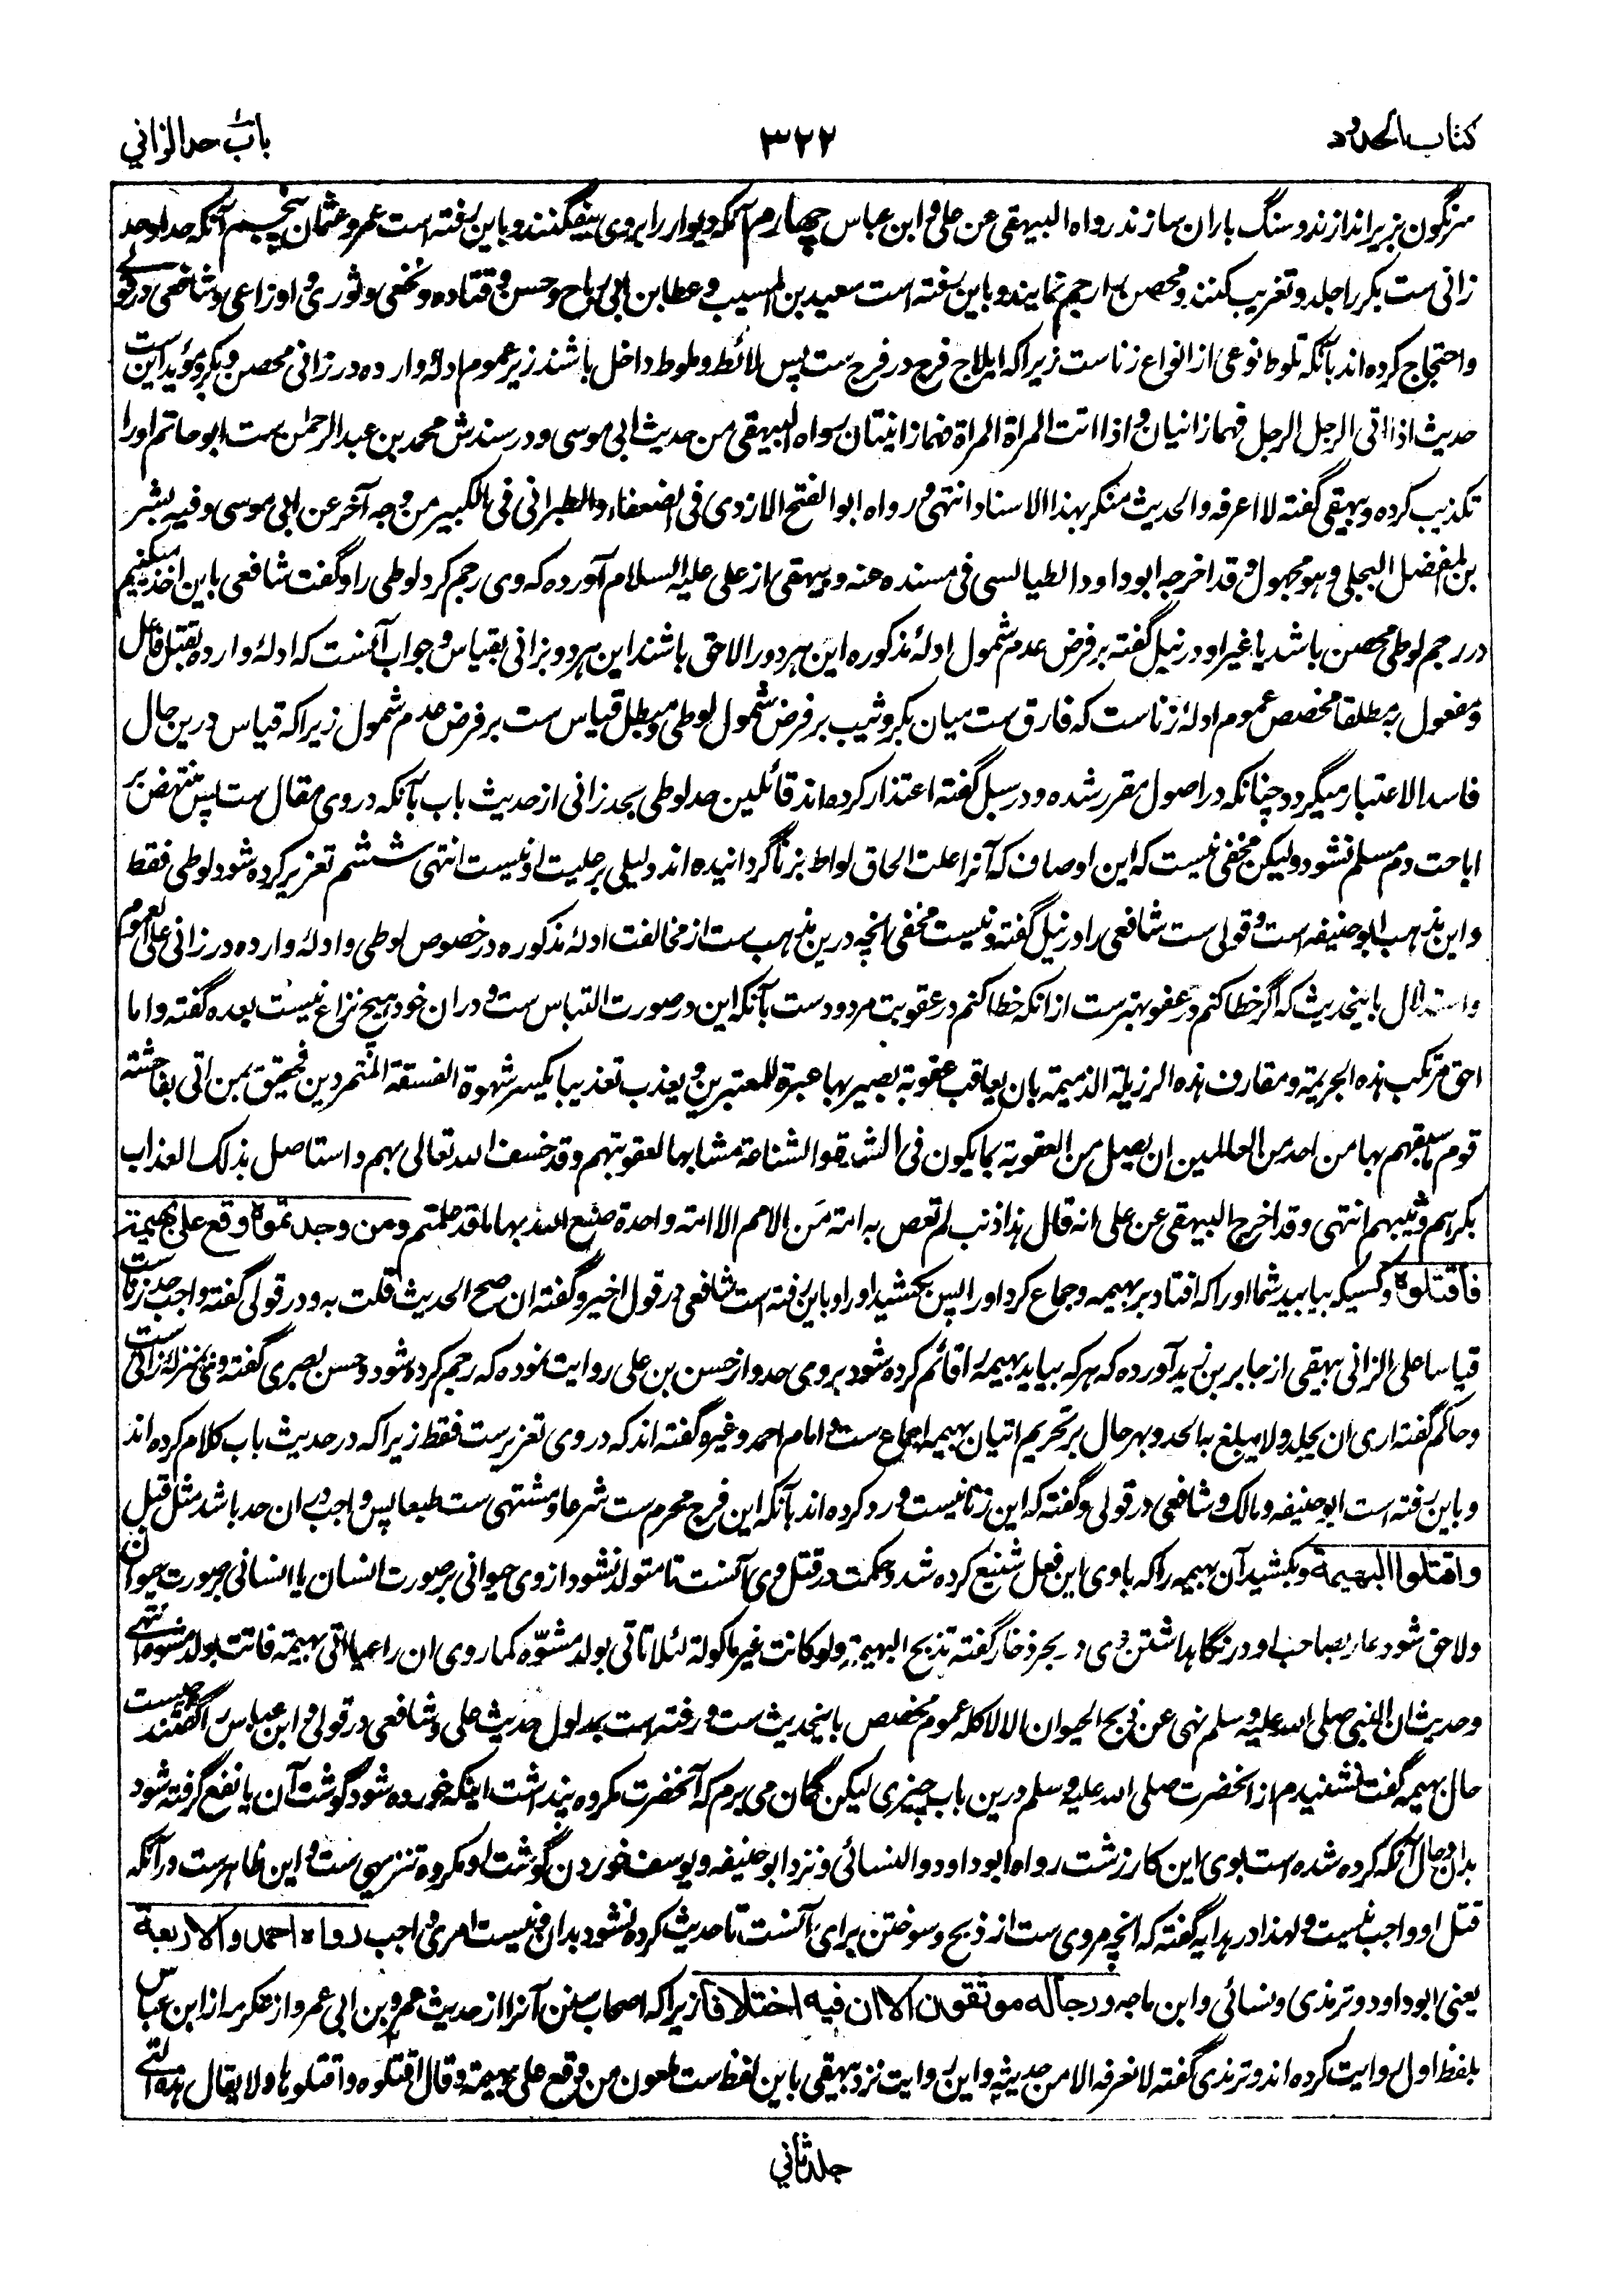 کتاب الحدود
۳۲۲
باب حد الزاني
سرنگون بزیر اندازند و سنگ باران سازند رواه البیهقی عن علی و ابن عباس چهارم آنکه دیوار را بروی بیفگنند و باین رفته است عمر و عثمان پنجم آنکه حد او حد
زانی ست بکر را جلد و تغریب کنند و محصن را رجم نمایند و باین رفته است سعید بن المسیب و عطا بن ابی رباح و حسن و قتاده و نخعی و ثوری و اوزاعی و شافعی در قولے
و احتجاج کرده اند بآنکه تلوط نوعی از انواع زناست زیرا که ایلاج فرج در فرج ست پس لائط و ملوط داخل باشند زیر عموم ادلۀ وارده در زانی محصن و بکر و مؤید این ست
حدیث اذا اتی الرجل الرجل فهما زانیان و اذا اتت المرأة المرأة فهما زانیتان رواه البیهقی من حدیث ابی موسی و در سندش محمد بن عبد الرحمٰن ست ابو حاتم او را
تکذیب کرده و بیهقی گفته لا اعرفه و الحدیث منکر بهذا الاسناد انتهی و رواه ابو الفتح الازدی فی الضعفاء و الطبرانی فی الکبیر من وجه آخر عن ابی موسی و فیه بشر
بن المفضل البجلی و هو مجهول و قد اخرجه ابو داود الطیالسی فی مسنده عنه و بیهقی از علی علیه السلام آورده که وی رجم کرد لوطی را و گفت شافعی باین اخذ میکنیم
در رجم لوطی محصن باشد یا غیر او در نیل گفته بر فرض عدم شمول ادلۀ مذکوره این هر دو را لاحق باشند این هر دو بزانی بقیاس و جواب آنست که ادلۀ وارده بقتل فاعل
و مفعول به مطلقا مخصص عموم ادلۀ زناست که فارق ست میان بکر و ثیب بر فرض شمول لوطی و مبطل قیاس ست بر فرض عدم شمول زیرا که قیاس درین حال
فاسد الاعتبار میگردد چنانکه در اصول مقرر شده و در سبل گفته اعتذار کرده اند قائلین حد لوطی بحد زانی از حدیث باب بآنکه در وی مقال ست پس منتهض بر
اباحت دم مسلم نشود و لیکن مخفی نیست که این اوصاف که آنرا علت الحاق لواط بزنا گردانیده اند دلیلی بر علیت او نیست انتهی ششم تعزیر کرده شود لوطی فقط
و این مذهب ابو حنیفه است و قولی ست شافعی را در نیل گفته و نیست مخفی انچه درین مذهب ست از مخالفت ادلۀ مذکوره در خصوص لوطی و ادلۀ وارده در زانی علی العموم
و استدلال باینحدیث که اگر خطا کنم در عفو بهتر ست ازانکه خطا کنم در عقوبت مردود ست بآنکه این در صورت التباس ست و دران خود هیچ نزاع نیست بعده گفته و اما
احق مرتکب هذه الجریمة و مقارف هذه الرزیلة الذمیمة بان یعاقب عقوبة یصیر بها عبرة للمعتبرین و یعذب تعذیبا یکسر شهوة الفسقة المتمردین فحقیق بمن اتی بفاحشة
قوم ما سبقهم بها من احد من العالمین ان یصلی من العقوبة بما یکون فی الشدة و الشناعة مشابها لعقوبتهم و قد خسف الله تعالی بهم و استاصل بذلک العذاب
بکرهم و ثیبهم انتهی و قد اخرج البیهقی عن علی انه قال هذا ذنب لم تعص به امة من الامم الا امة واحدة صنع الله بها ما قد علمتم و من وجدتموه وقع علی بهیمة
فاقتلوه و کسیکه بیابید شما او را که افتاد بر بهیمه و جماع کرد او را پس بکشید او را و باین رفته است شافعی در قول اخیر و گفته ان صح الحدیث قلت به و در قولی گفته واجب حد زناست
قیاسا علی الزانی بیهقی از جابر بن زید آورده که هر که بیاید بهیمه را قائم کرده شود بر وی حد و از حسن بن علی روایت نموده که رجم کرده شود و حسن بصری گفته وی بمنزلۀ زانی ست
و حاکم گفته اری ان یجلد و لا یبلغ به الحد و بهر حال بر تحریم اتیان بهیمه اجماع ست و امام احمد و غیره گفته اند که در وی تعزیر ست فقط زیرا که در حدیث باب کلام کرده اند
و باین رفته است ابو حنیفه و مالک و شافعی در قولی و گفته که این زنا نیست و رد کرده اند بآنکه این فرج محرم ست شرعا و مشتهی ست طبعا پس واجب دران حد باشد مثل قبل
و اقتلوا البهیمة و بکشید آن بهیمه را که با وی این فعل شنیع کرده شد و حکمت در قتل وی آنست تا متولد نشود از وی حیوانی بر صورت انسان یا انسانی بر صورت حیوان
و لاحق شود عار بصاحب او در نگاهداشتن وی در بحر ذخار گفته تذبح البهیمة و لو کانت غیر ماکولة لئلا تاتی بولد مشوّه کما روی ان راعیا اتی بهیمة فاتت بولد مشوه انتهے
و حدیث ان النبی صلی الله علیه و سلم نهی عن ذبح الحیوان الا لاکله عموم مخصص باینحدیث ست و رفته است بمدلول حدیث علی و شافعی در قولی و ابن عباس را گفتند چیست
حال بهیمه گفت نشنیدم از انحضرت صلی الله علیه و سلم درین باب چیزی لیکن گمان می برم که آنحضرت مکروه پنداشت اینکه خورده شود گوشت آن یا نفع گرفته شود
بدان و حال آنکه کرده شده است بوی این کار زشت رواه ابو داود و النسائی و نزد ابو حنیفه و یوسف خوردن گوشت او مکروه تنزیهی ست و این ظاهر ست در آنکه
قتل او واجب نیست و لهذا در هدایه گفته که انچه مروی ست از ذبح و سوختن برای آنست تا حدیث کرده نشود بدان و نیست امری واجب رواه احمد و الاربعة
یعنی ابو داود و ترمذی و نسائی و ابن ماجه و رجاله موثقون الا ان فیه اختلافا زیرا که اصحاب سنن آنرا از حدیث عمرو بن ابی عمرو از عکرمه از ابن عباس
بلفظ اول روایت کرده اند و ترمذی گفته لا نعرفه الا من حدیثه و این روایت نزد بیهقی باین لفظ ست ملعون من وقع علی بهیمة و قال اقتلوه و اقتلوها و لا یقال هذه التے
جلد ثاني